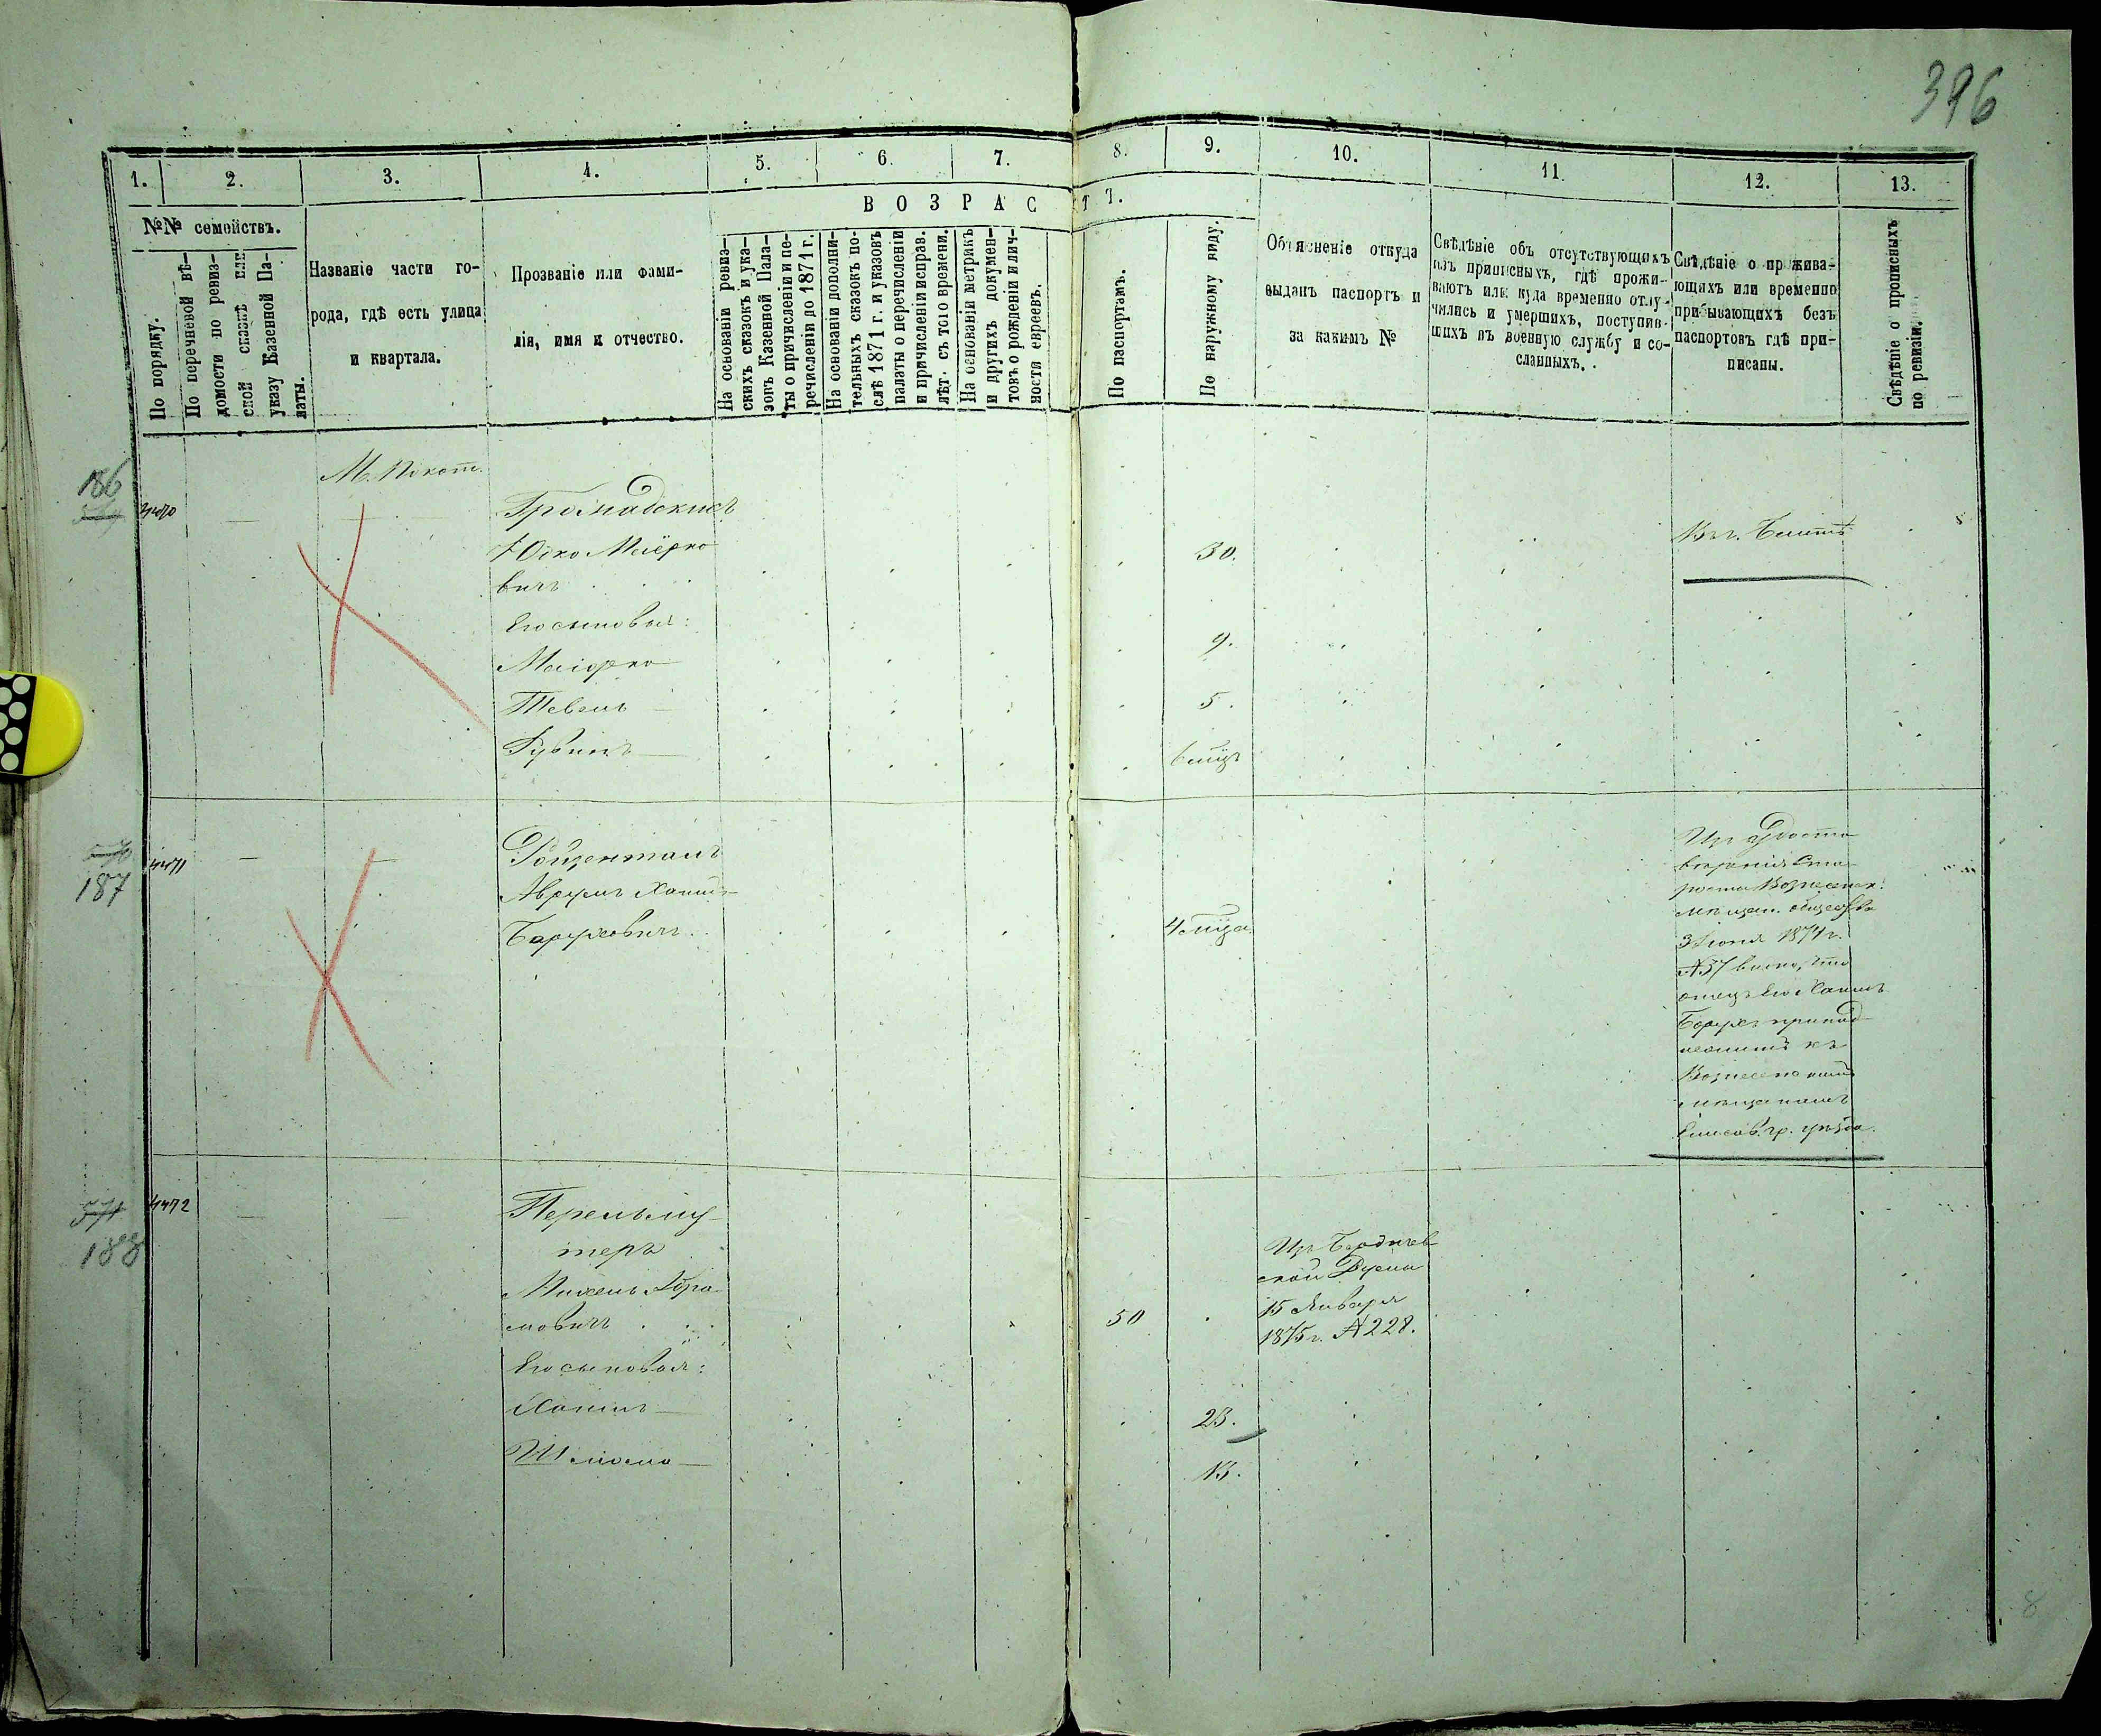 396
1.
2.
3.
4.
5.
6.
7.
8.
9.
10.
11.
12.
13.
№№ семействъ.
По порядку.
По перечневой вѣ-
домости по ревиз-
ской сказкѣ или
указу Казенной Па-
латы.
Названіе части го-
рода, гдѣ есть улица
и квартала.
Прозваніе или фами-
лія, имя и отчество.
ВОЗРАСТЪ.
На основаніи ревиз-
скихъ сказокъ и ука-
зовъ Казенной Пала-
ты о причисленіи и пе-
речисленіи до 1871 г.
На основаніи дополни-
тельныхъ сказокъ по-
слѣ 1871 г. и указовъ
палаты о перечисленіи
и причисленіи исправ.
лѣт. съ того времени.
На основаніи метрикъ
и другихъ докумен-
товъ о рожденіи и лич-
ности евреевъ.
По паспортамъ.
По наружному виду.
Объясненіе откуда
выданъ паспортъ и
за какимъ №
Свѣдѣніе объ отсутствующихъ
изъ приписныхъ, гдѣ прожи-
ваютъ или куда временно отлу-
чились и умершихъ, поступив-
шихъ въ военную службу и со-
сланныхъ.
Свѣдѣніе о прожива-
ющихъ или временно
прибывающихъ безъ
паспортовъ гдѣ при-
писаны.
Свѣдѣніе о прописныхъ
по ревизіи.
186
4470
Громадскіе
Юско Маіорко
вичъ
30.
Его сыновья:
Маіорко
9.
Тевель
5.
Рувинъ
6 мѣц
187
4471
Ройзенталь
Аврумъ Хаимъ
Боруховичъ
4 мѣца
Изъ удосто
вѣренія Ста
росты Вознесенск.
мѣщан. общества
3 Іюня 1874 г.
№ 37 видно, что
отецъ его Хаимъ
Борухъ принад-
лежитъ къ
Вознесенскимъ
мѣщанамъ
Елисав. гр. уѣзда.
571
188
4472
Перельму-
теръ
Михель Абра
мовичъ
50
Изъ Бердичев
ской Думы
15 Января
1875 г. № 228.
Его сыновья:
Хаимъ
23.
Шліома
13.
8